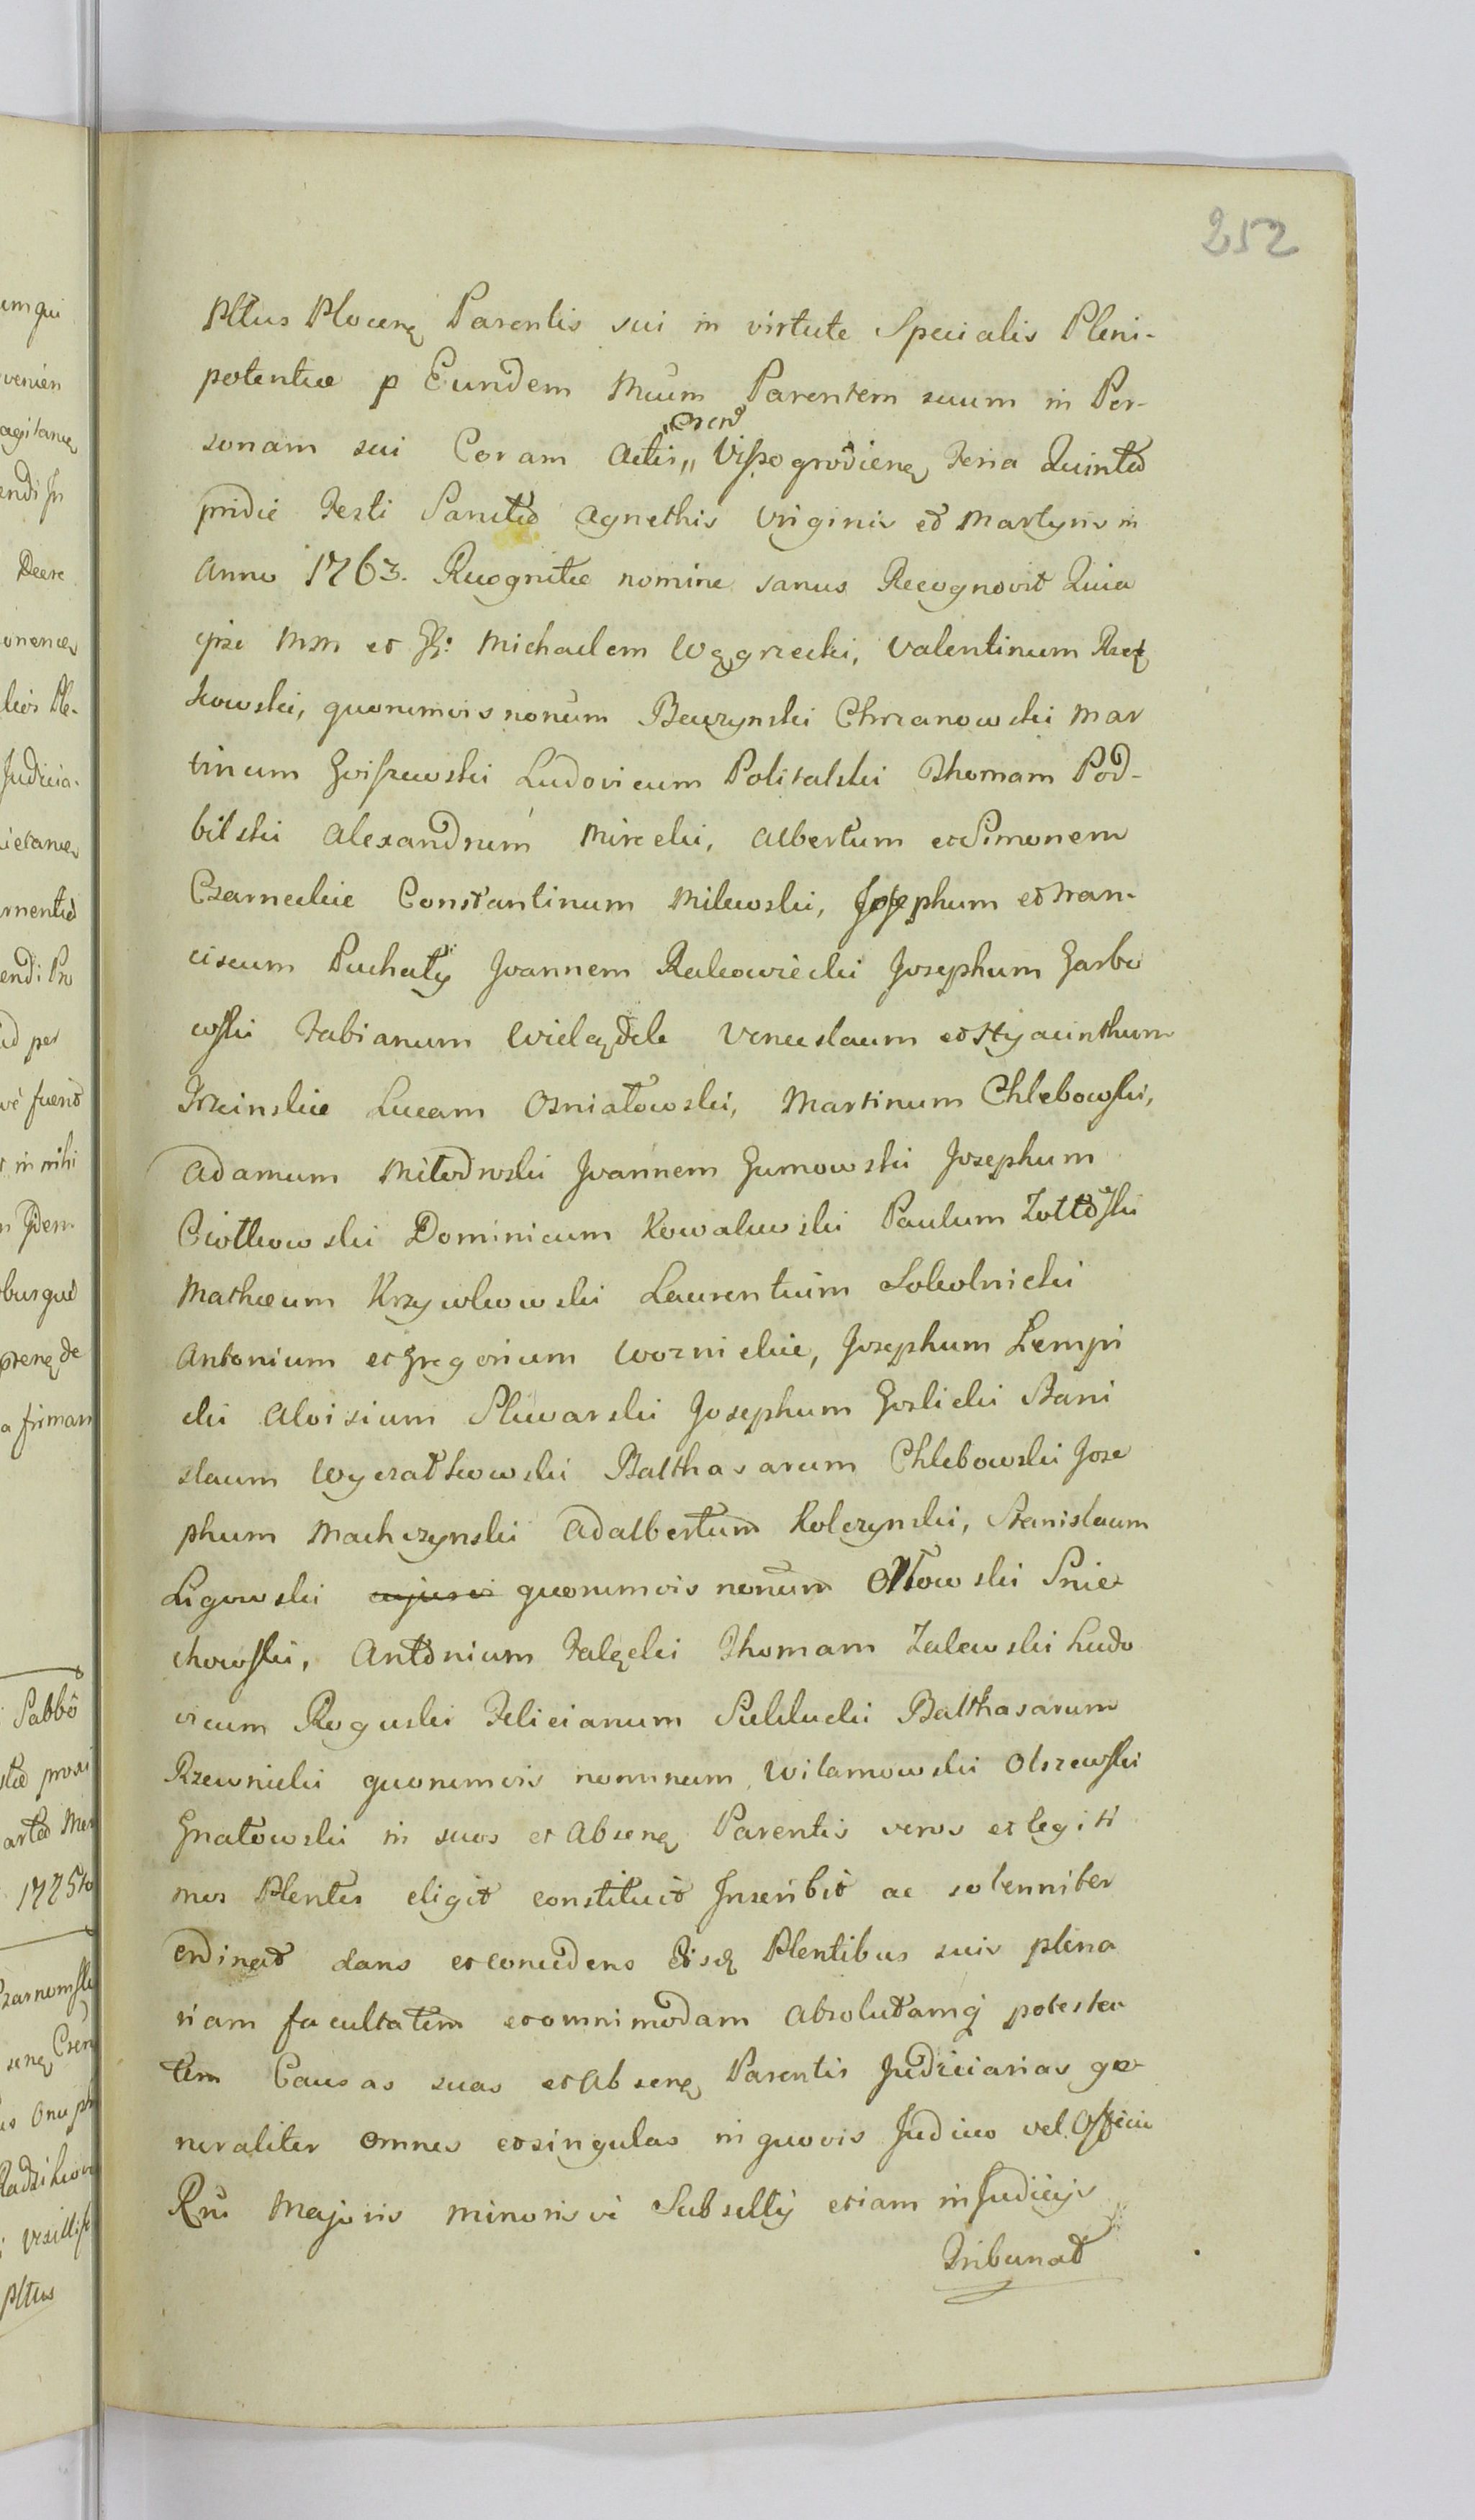 252
Pltus Plocen Parentis sui in virtute Specialis Pleni-
potentiæ p Eundem Mcum Parentem suum in Per-
sonam sui Coram Actis „Cren„ Visogrodien Feria Quinta
pridie Festi Sanctæ Agnethis Virginis et Martyris in
Anno 1763. Recognitæ nomine sanus Recognovit Quia
ipse Mm et Gg: Michaelem Węgrzecki, Valentinum Rzę
kowski, quorumvis nonum Beczynski Chrzanowski Mar
tinum Goiszewski Ludovicum Politalski Thomam Pod-
bilski Alexandrum Mirecki, Albertum et Simonem
Czarneckie Constantinum Milewski, Josephum et Fran-
ciscum Puchały Joannem Rakowiecki Josephum Garbo
wski Fabianum Wielądek Venceslaum et Hyacinthum
Trzcinskie Lucam Osniatowski, Martinum Chlebowski,
Adamum Miłodroski Joannem Gumowski Josephum
Ciołkowski Dominicum Kowalewski Paulum Zołtoski
Mathæum Krzywkowski Laurentium Sokolnicki
Antonium et Gregorium Woznickie, Josephum Lempi
cki Aloisium Sluwarski Josephum Goslicki Stani
slaum Wyczałkowski Balthasarum Chlebowski Jose
phum Machczynski Adalbertum Kolczynski, Stanislaum
Ligowski cujusvis quorumvis nonum Ołtowski Snie
chowski, Antonium Falęcki Thomam Zalewski Ludo
vicum Roguski Felicianum Sieklucki Balthasarum
Rzewnicki quorumvis nominum Witamowski Olszewski
Gnatowski in suos et Absen Parentis veros et legiti
mos Plentes eligit constituit Inscribit ac solenniter
ordinat dans et concedens Eisd Plentibus suis plena
riam facultatem et omnimodam Absolutamq potesta
tem Causas suas et Absen Parentis Judiciarias ge
neraliter omnes et singulas in quovis Judicio vel Officio
Rni Majoris minorisve Subsellij etiam in Judicijs
Tribunal